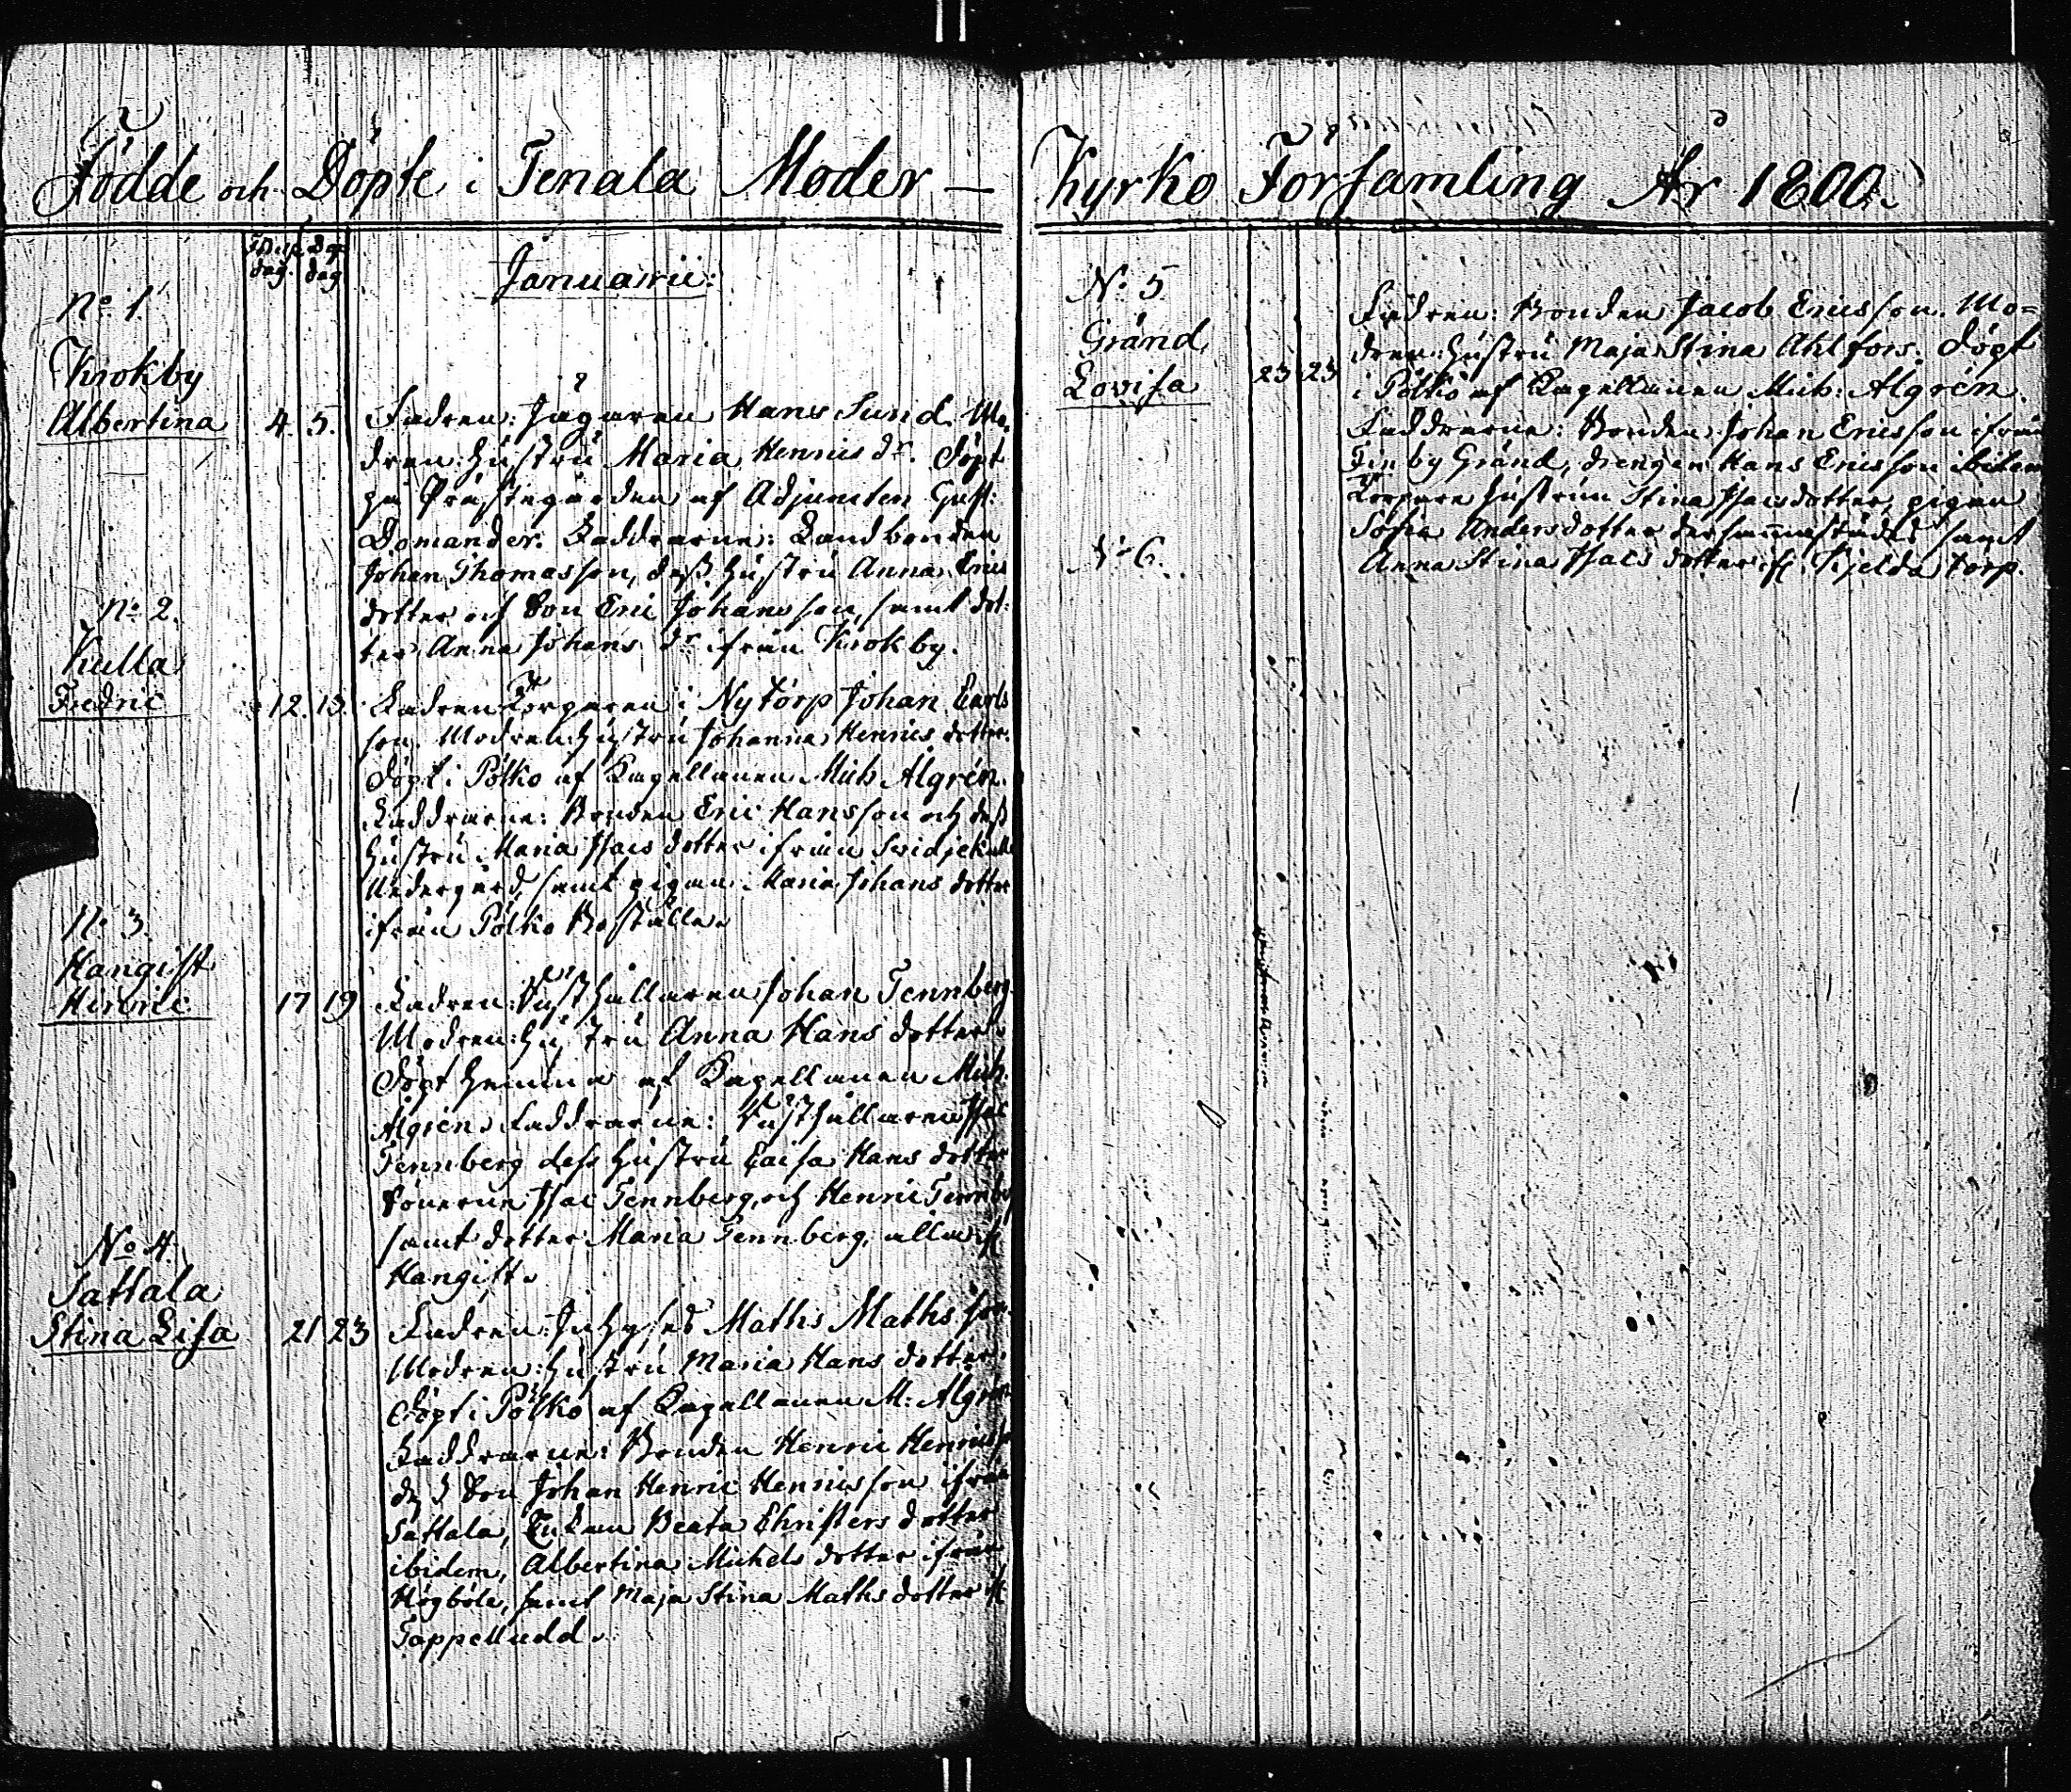 Födde och Döpte i Tenala Moder –
Födelse dag. Dop dag
Januarii:
No 1.
Krokby
Albertina 4. 5.
Fadren: Jägaren Hans Sund. Mo-
dren: hustru Maria Henrics dr. döpt
på Prästegården af Adjuncten Gust:
Domander. Faddrarne: Landbonden
Johan Thomasson, dess hustru Anna Erics
dotter och Son Eric Johansson, samt dot-
ter Anna Johans dr ifrån Krokby.
No 2.
Kulla
Fredric 12. 13.
Fadren Torparen i Nytorp Johan Carls
son. Modren: hustru Johanna Henrics dotter.
döpt i Pölkö af Capellanen Mich Algrén.
Faddrarne: Bonden Eric Hansson och dess
hustru Maria Isacs dotter ifrån Svidjekulla
Nedergård, samt pigan Maria Johans dotter
ifrån Pölkö Boställe.
No 3.
Hangist
Henric 17 19
Fadren: Rusthållaren Johan Tennberg.
Modren: hustru Anna Hans dotter.
döpt hemma af Capellanen Mich.
Algrén. Faddrarne: Rusthållaren Isac
Tennberg dess hustru Caisa Hans dotter
Sönerne Isac Tennberg, och Henric Tennberg
samt dotter Maria Tennberg, alla ifr
Hangist.
No 4.
Sattala
Stina Lisa 21 23
Fadren: Inhyses Maths Mathsson.
Modren: hustru Maria Hans dotter.
döpt i Pölkö af Capellanen M: Algrén
Faddrarne: Bonden Henric Henricss.
Son Johan Henric Henricsson ifrån
Sattala, Enkan Beata Christers dotter
ibidem, Albertina Michels dotter ifrån
Högböle, samt Maja Stina Maths dotter ifr
Tappelludd.
Kyrko Församling År 1800.
No 5
Gränd
Lovisa 23 23
Fadren: Bonden Jacob Ericsson. Mo-
dren: hustru Maja Stina Ahlfors. döpt
i Pölkö af Capellanen Mich: Algrén.
Faddrarne: Bonden Johan Ericsson ifrån
Finby Gränd, drengen Hans Ericsson ibidem
Torpare hustrun Stina Isacsdotter, pigan
Sofia Andersdotter dersammastädes samt
Anna Stina Isacs dotter ifr Kjelda torp.
No 6.